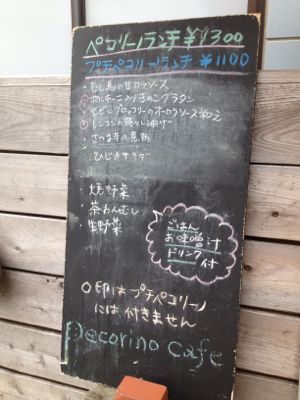 ペコリーノランチ ¥1300
プチペコリーノランチ ¥1100
・むし鶏の甘カラソース
きのこグラタン
・エビとブロッコリーのオーロラソース和え
レンコンの落とし揚げ
・さつま芋の煮物
・ひじきサラダ
・焼野菜
・茶わんむし
・生野菜
ごはん
お味噌汁
ドリンク
付
○印は プチペコリーノ
には 付きません
Pecorino Cafe